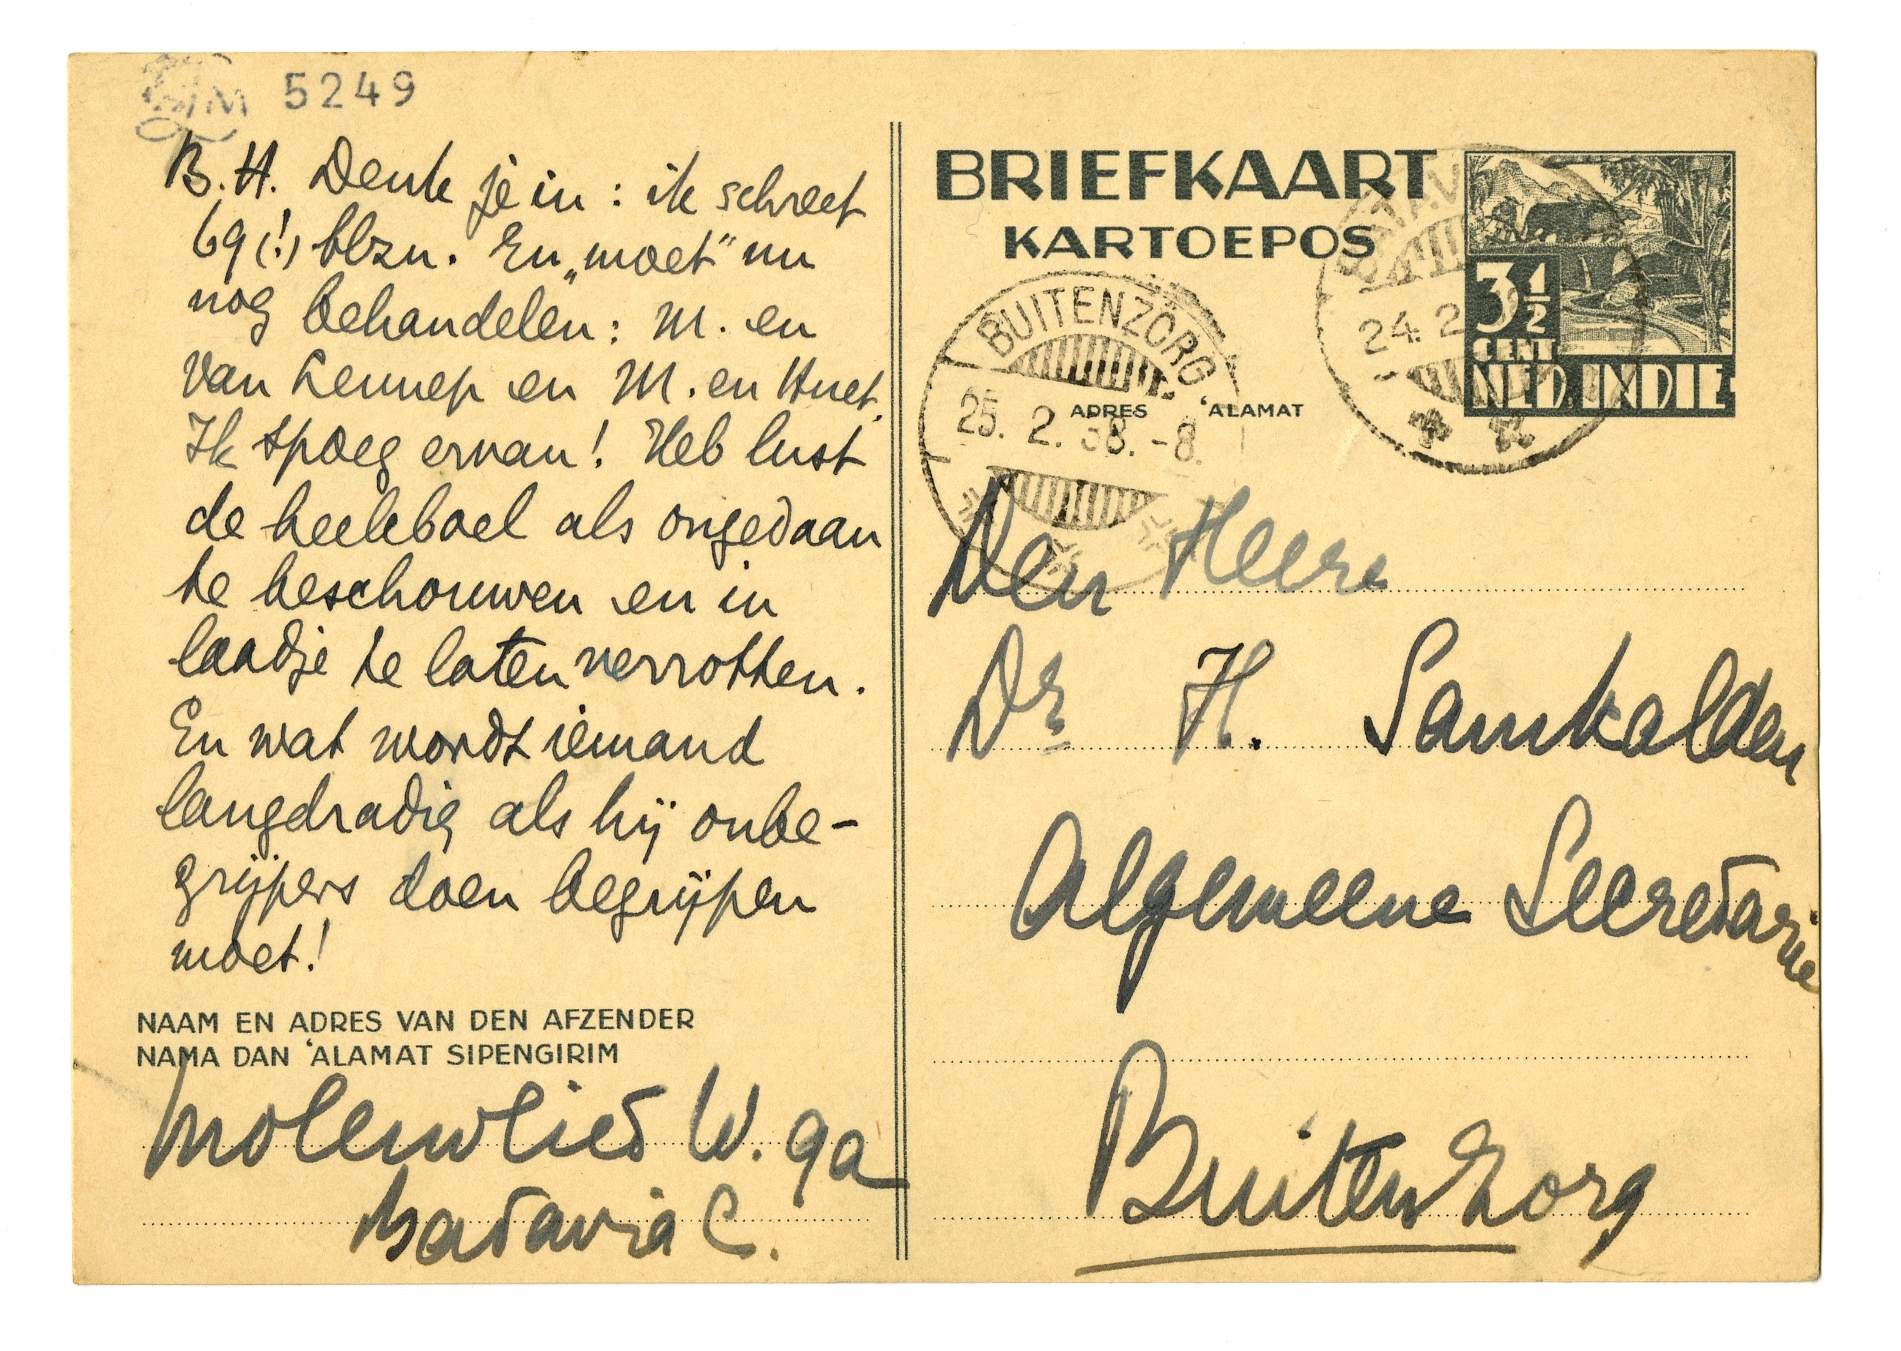 5249
B.H. Denk je in: ik schreef
69(!) blzn. En „moet" nu
nog behandelen: M. en
van Lennep en M. en Huet.
Ik spoeg ervan! Heb lust
de heeleboel als ongedaan
te beschouwen en in
laadje te laten verrotten.
En wat wordt iemand
langdradig als hij onbe-
grijpers doen begrijpen
moet!
NAAM EN ADRES VAN DEN AFZENDER
NAMA DAN 'ALAMAT SIPENGIRIM
Molenvliet W. 9a
Batavia C.
BRIEFKAART
KARTOEPOS
3½
CENT
NED. INDIE
24.2
BUITENZORG
25. 2. 38.-8.
ADRES 'ALAMAT
Den Heere
Dr H. Samkalden
Algemeene Secretarie
Buitenzorg